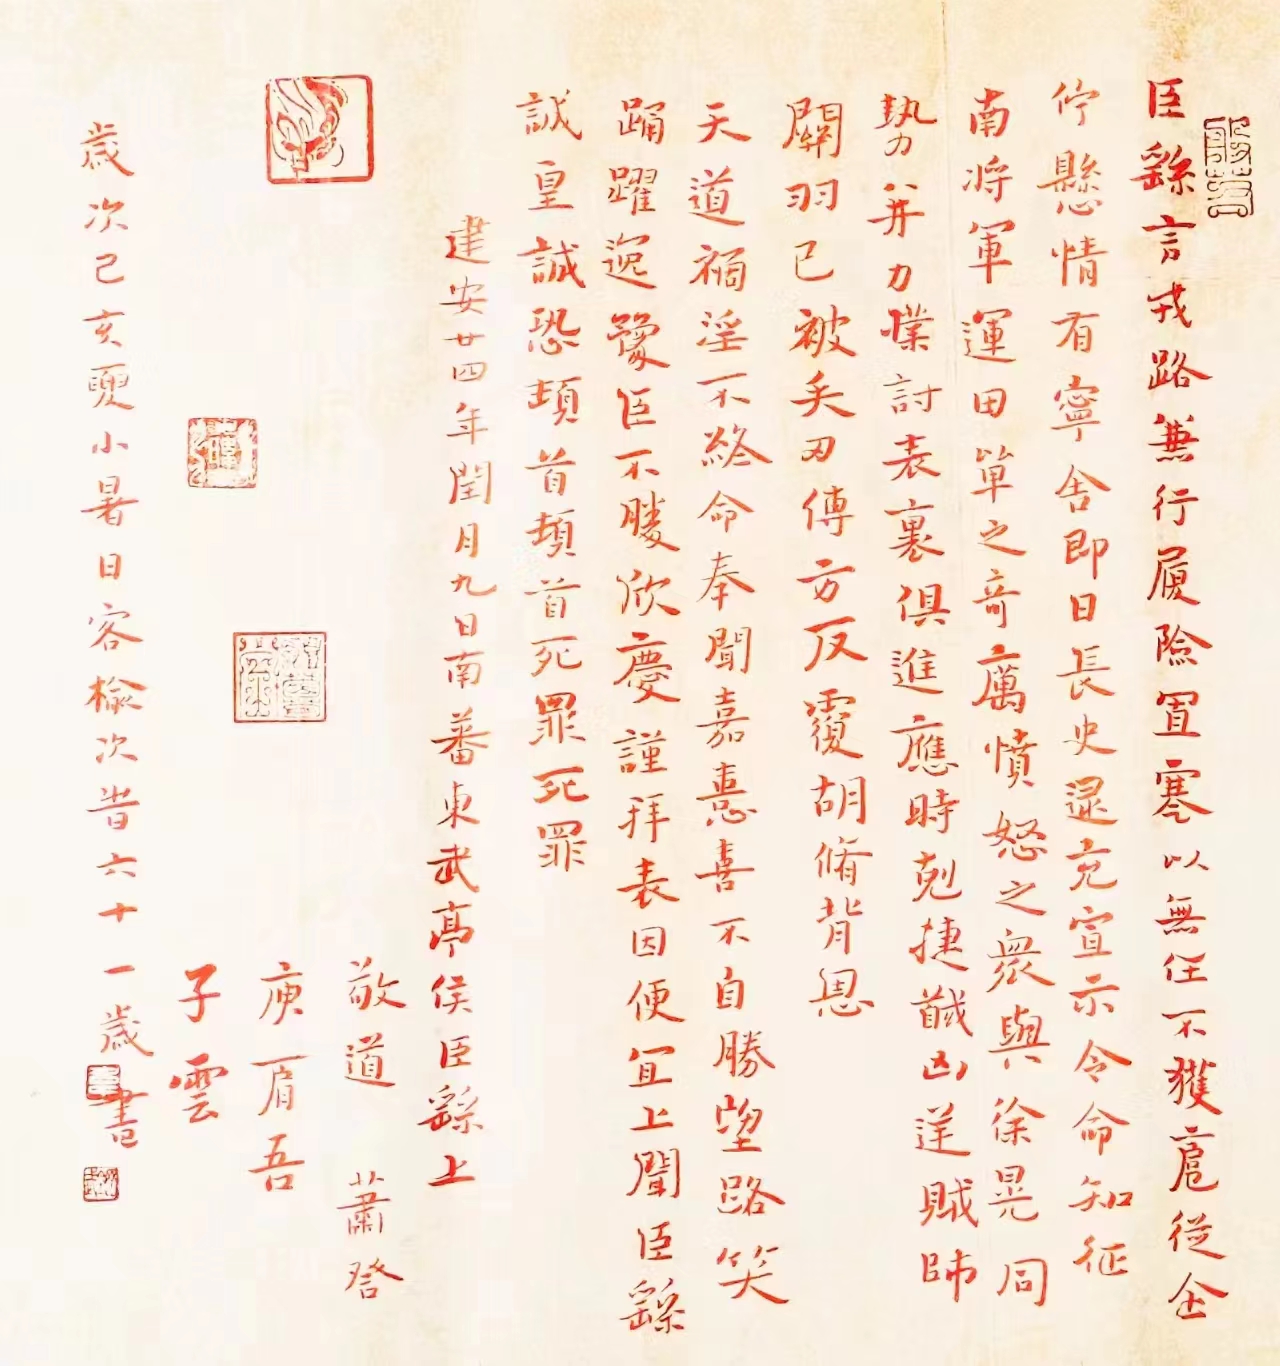 臣繇言戎路兼行履險冒寒以無任不獲扈從企
佇懸情有寧舍即日長史逯充宣示令命知征
南將軍運田單之奇厲憤怒之衆與徐晃同
勢并力撲討表裏俱進應時剋捷馘凶逆賊帥
關羽已被矢刃傅方反覆胡脩背恩
天道禍淫不終命奉聞嘉憙喜不自勝望路笑
踊躍逸豫臣不勝欣慶謹拜表因便宜上聞臣繇
誠皇誠恐頓首頓首死罪死罪
建安廿四年閏月九日南蕃東武亭侯臣繇上
敬道 蕭登
庾肩吾
子雲
歲次己亥夏小暑日客榆次皆六十一歲書